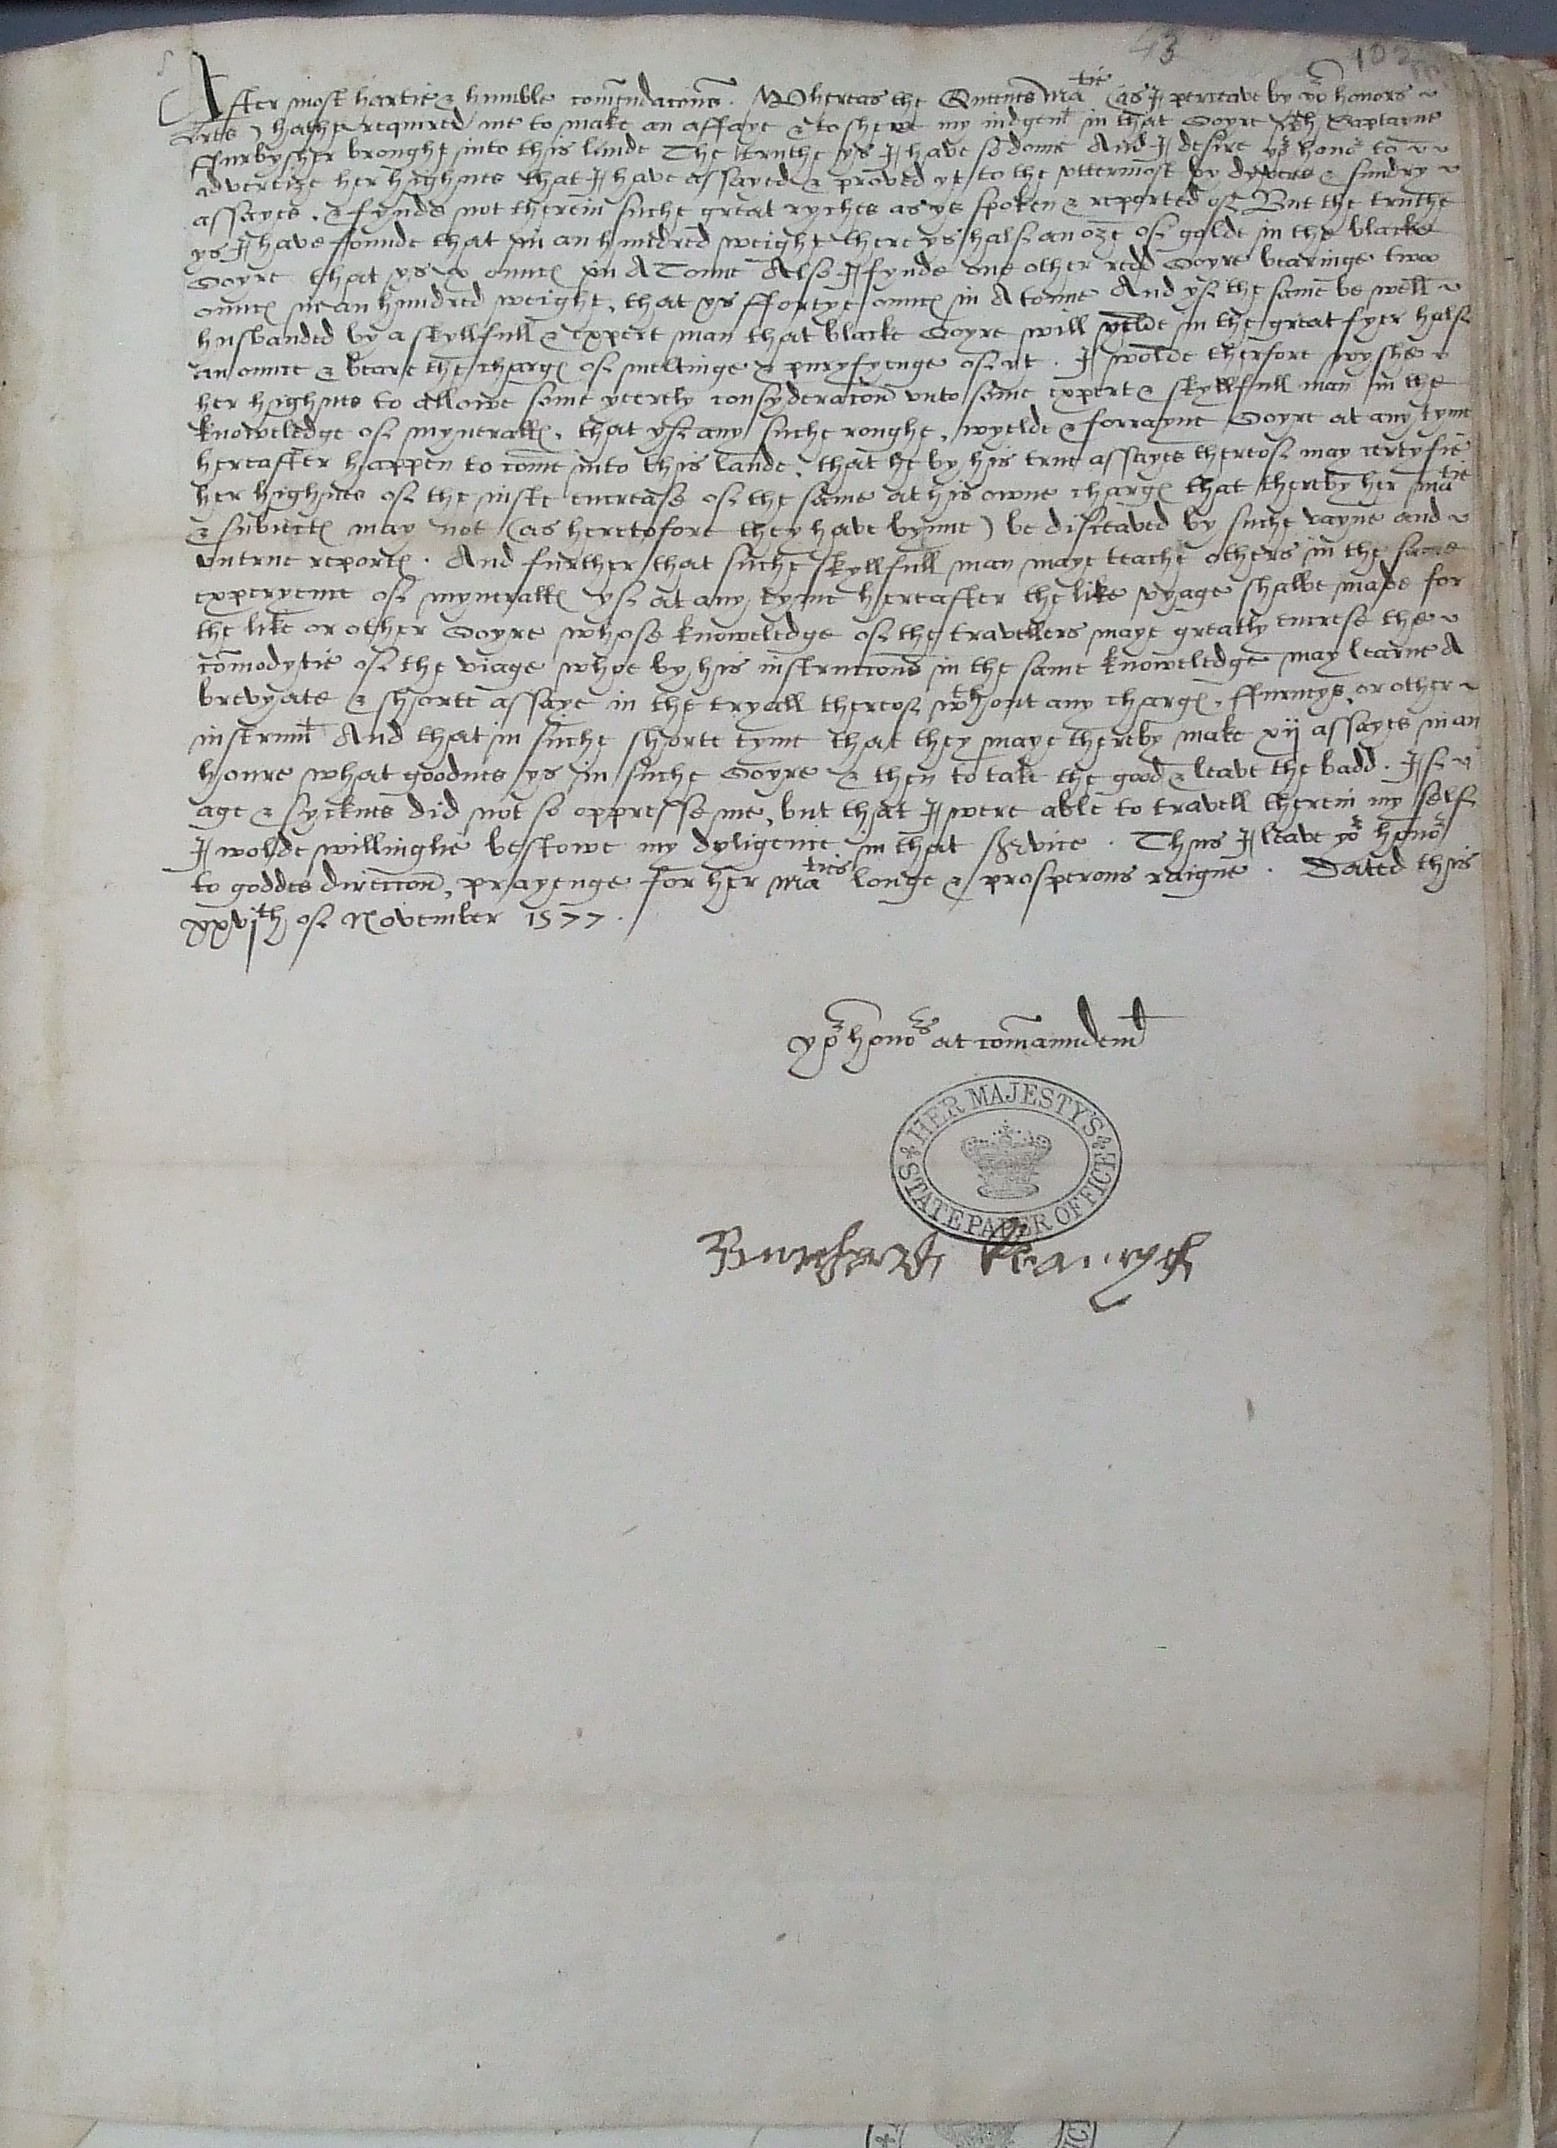 43 103
After most hartie & humble comendacons. Whereas the Queenes Matie (as I perceave by yor honors
Lres) hathe required me to make an assaye & to shewe my iudgemt in that Ooyre wch Captayne
ffurbysher brought into this lande The truthe ys I have so done And I desire yor honor to
advertize her highnes that I have assayed & proved yt to the uttermost by dyvers & sundry
assayes, & fynde not therein suche great ryches as ys spoken & reported of. But the truthe
ys I have founde that in an hundred weight there ys half an oze of golde in the blacke
Ooyre that ys x ounces in A Tonne Also I fynde one other redd Ooyre bearinge twoo
ounces in an hundred weight, that ys ffortye ounces in A tonne And yf the same be well
husbanded by a skyllfull & expert man that blacke Ooyre will yelde in the great fyer half
an ounce & beare the charges of meltinge & puryfyenge of it. I wolde therfore wyshe
her highnes to allowe some yeerely consyderacon unto some expert & skyllfull man in the
knoweledge of myneralles, that yf any suche roughe, wyelde & forrayne Ooyre at any tyme
hereafter happen to come into this lande, that he by his true assayes thereof may certyfie
her highnes of the iuste encrease of the same at his owne charges that thereby her Matie
& subiectes may not (as heretofore they have bynne) be disceaved by suche vayne and
untrue reportes. And further that suche skyllfull man maye teache others in the same
experyence of myneralles yf at any tyme hereafter the like vyage shalbe made for
the like or other Ooyre whose knoweledge of the travellers maye greatly encrese the
comodytie of the viage whoe by his instruccons in the same knoweledge may learne A
brevyate & shorte assaye in the tryall thereof wthout any charges, ffurneys, or other
instrumt And that in suche shorte tyme that they maye thereby make xij assayes in an
houre what goodnes ys in suche Ooyre & then to take the good & leave the badd. If
age & syeknes did not so oppresse me, but that I were able to travell therein my self
I wolde willinglie bestowe my dyligence in that service. Thus I leave yor honor
to goddes direccon, prayenge for her Maties longe & prosperous raigne. Dated this
xxvjth of November 1577.
yor honors at comaundemt
HER MAJESTY'S STATE PAPER OFFICE
Burchard Kranrych